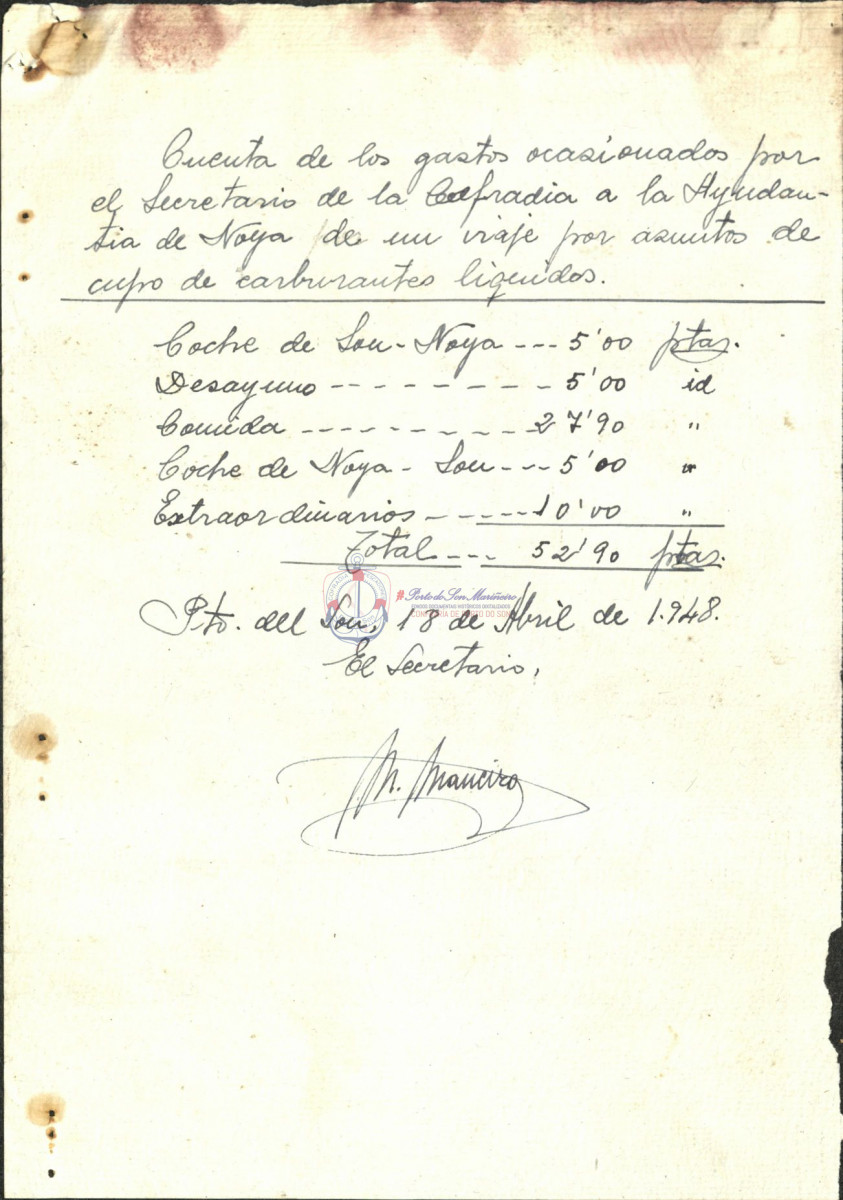 Cuenta de los gastos ocasionados por
el Secretario de la Cofradia a la Ayudan-
tia de Noya de un viaje por asuntos de
cupo de carburantes liquidos.
Coche de Son - Noya --- 5'00 ptas.
Desayuno --------- 5'00 id
Comida --------- 27'90 "
Coche de Noya - Son --- 5'00 "
Extraordinarios ----- 10'00 "
Total --- 52'90 ptas.
#Porto do Son Mariñeiro
FONDOS DOCUMENTAIS HISTÓRICOS DIXITALIZADOS
COFRADÍA DE PORTO DO SON
Pto. del Son, 18 de Abril de 1.948.
El Secretario,
M. Maneiro